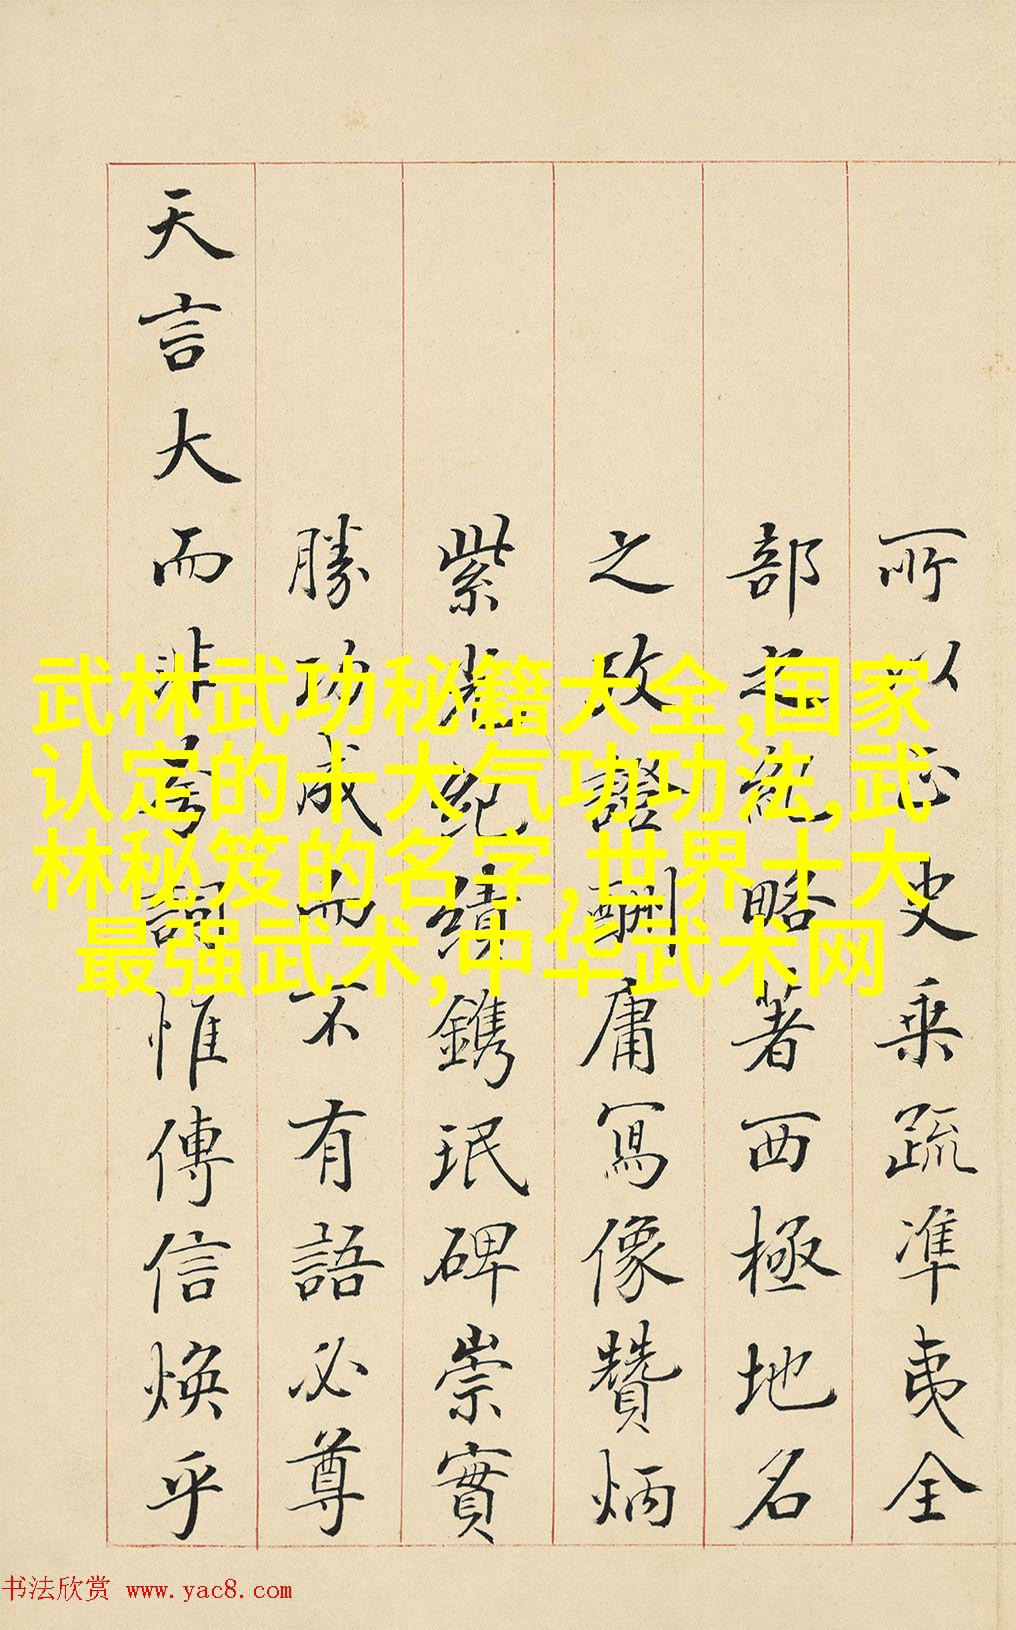 所以正史乘疏準夷全
部紀略著西極地名
之攷證酬庸寫像贊炳
紫光紀績鐫珉碑崇實
勝功成而不有語必尊
天言大而非夸詞惟傳信煥乎
武林武功秘籍大全,国家
认定的十大气功功法,武
林秘笈的名字,世界十大
最强武术,中华武术网
书法欣赏 www.yac8.com